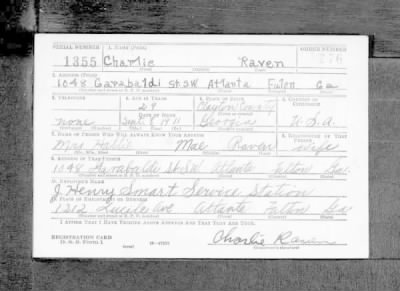 SERIAL NUMBER 1. NAME (Print) ORDER NUMBER
1355 Charlie Raven
(First) (Middle) (Last)
2. ADDRESS (Print)
1048 Garabaldi St. SW Atlanta Fulton Ga
3. TELEPHONE 4. AGE IN YEARS 5. PLACE OF BIRTH 6. COUNTRY OF CITIZENSHIP
29 Clayton County
none Sept 1911 Georgia U.S.A
7. NAME OF PERSON WHO WILL ALWAYS KNOW YOUR ADDRESS 8. RELATIONSHIP OF THAT PERSON
Mrs Hattie Mae Raven Wife
9. ADDRESS OF THAT PERSON
1048 Garabaldi St SW Atlanta Fulton Ga
10. EMPLOYER'S NAME
J. Henry Smart Service Station
11. PLACE OF EMPLOYMENT OR BUSINESS
1212 Lucile Ave Atlanta Fulton Ga
I AFFIRM THAT I HAVE VERIFIED ABOVE ANSWERS AND THAT THEY ARE TRUE.
REGISTRATION CARD
D. S. S. Form 1 (over) 16-17105
Charlie Raven
(Registrant's signature)